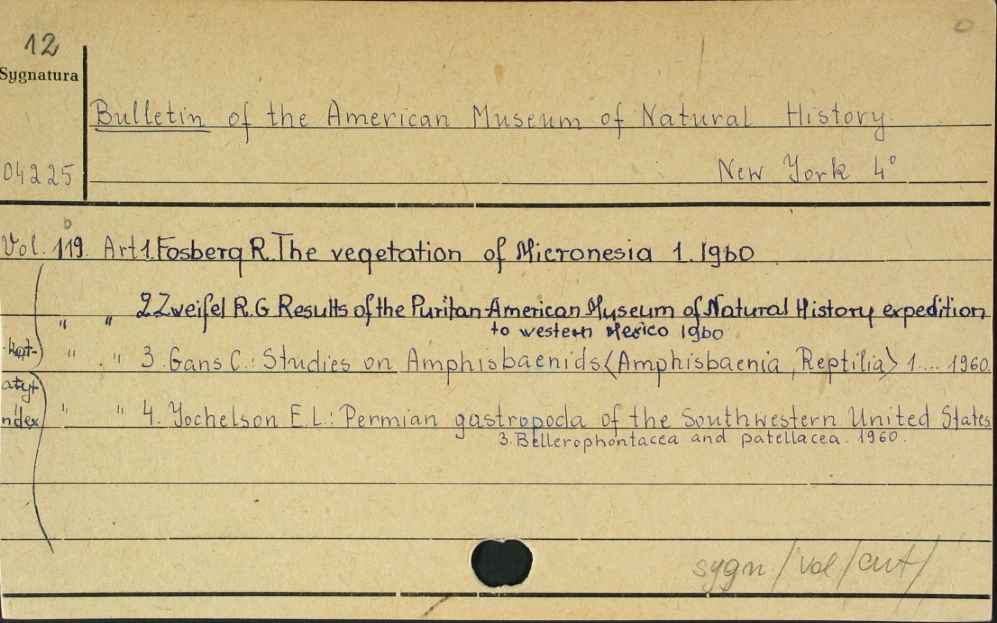 12
Sygnatura
Bulletin of the American Museum of Natural History
04225
New York 4°
Vol. 119. Art 1. Fosberg R. The vegetation of Micronesia 1. 1960
" " 2 Zweifel R.G Results of the Puritan-American Museum of Natural History expedition
to western Mexico 1960
" " 3. Gans C.: Studies on Amphisbaenids <Amphisbaenia, Reptilia> 1.... 1960.
atyt
ndex " " 4. Yochelson E L.: Permian gastropoda of the Southwestern United States
3. Bellerophontacea and patellacea. 1960.
sygn/vol/art/